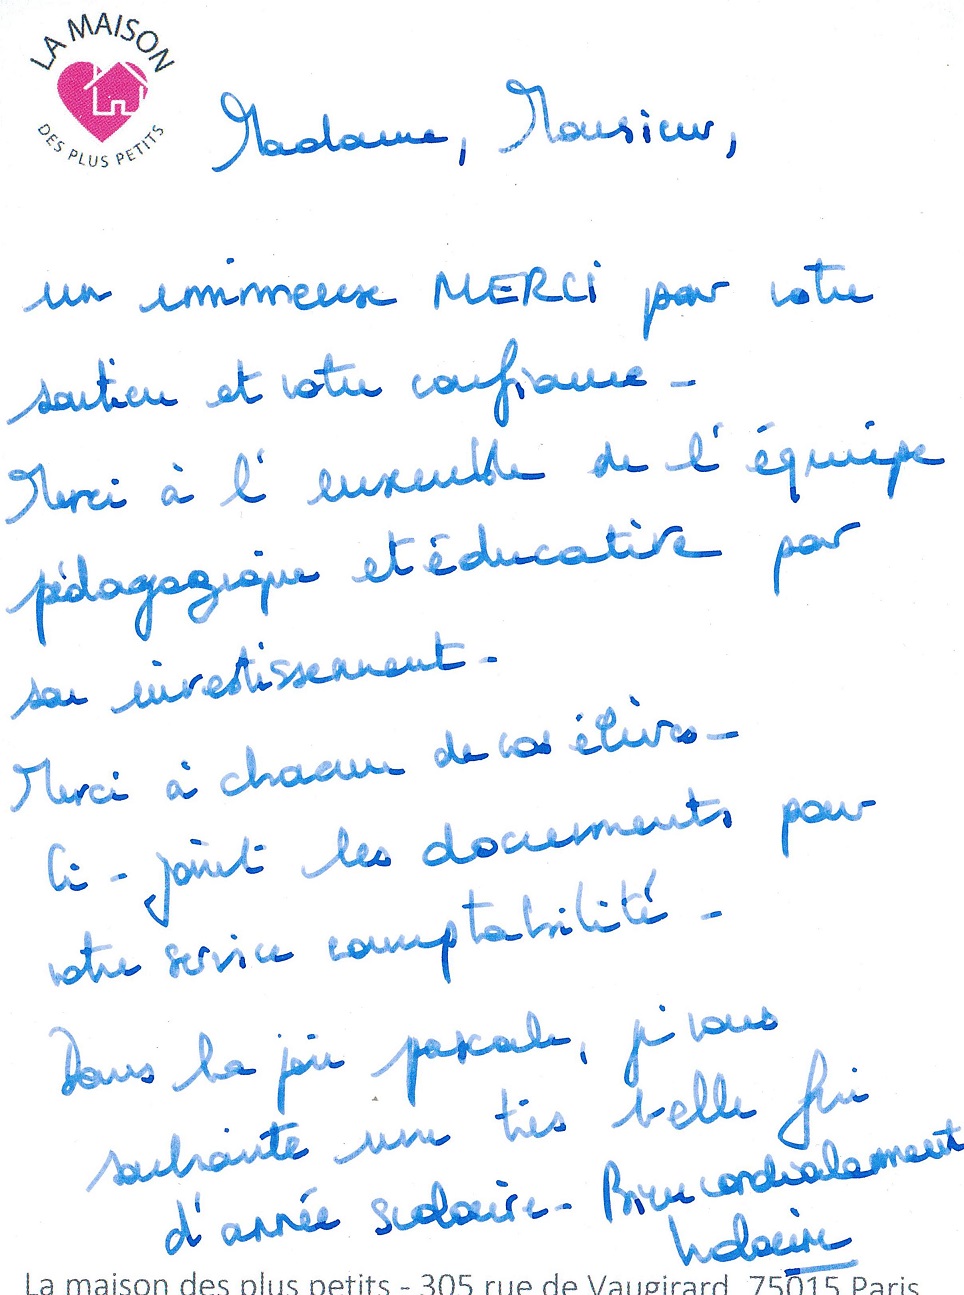 LA MAISON
DES PLUS PETITS
Madame, Monsieur,
un immense MERCI pour votre
soutien et votre confiance -
Merci à l'ensemble de l'équipe
pédagogique et éducative pour
son investissement -
Merci à chacun de vos élèves -
Ci-joint les documents pour
votre service comptabilité -
Dans la joie pascale, je vous
souhaite une très belle fin
d'année scolaire - Bien cordialement
La maison des plus petits - 305 rue de Vaugirard 75015 Paris